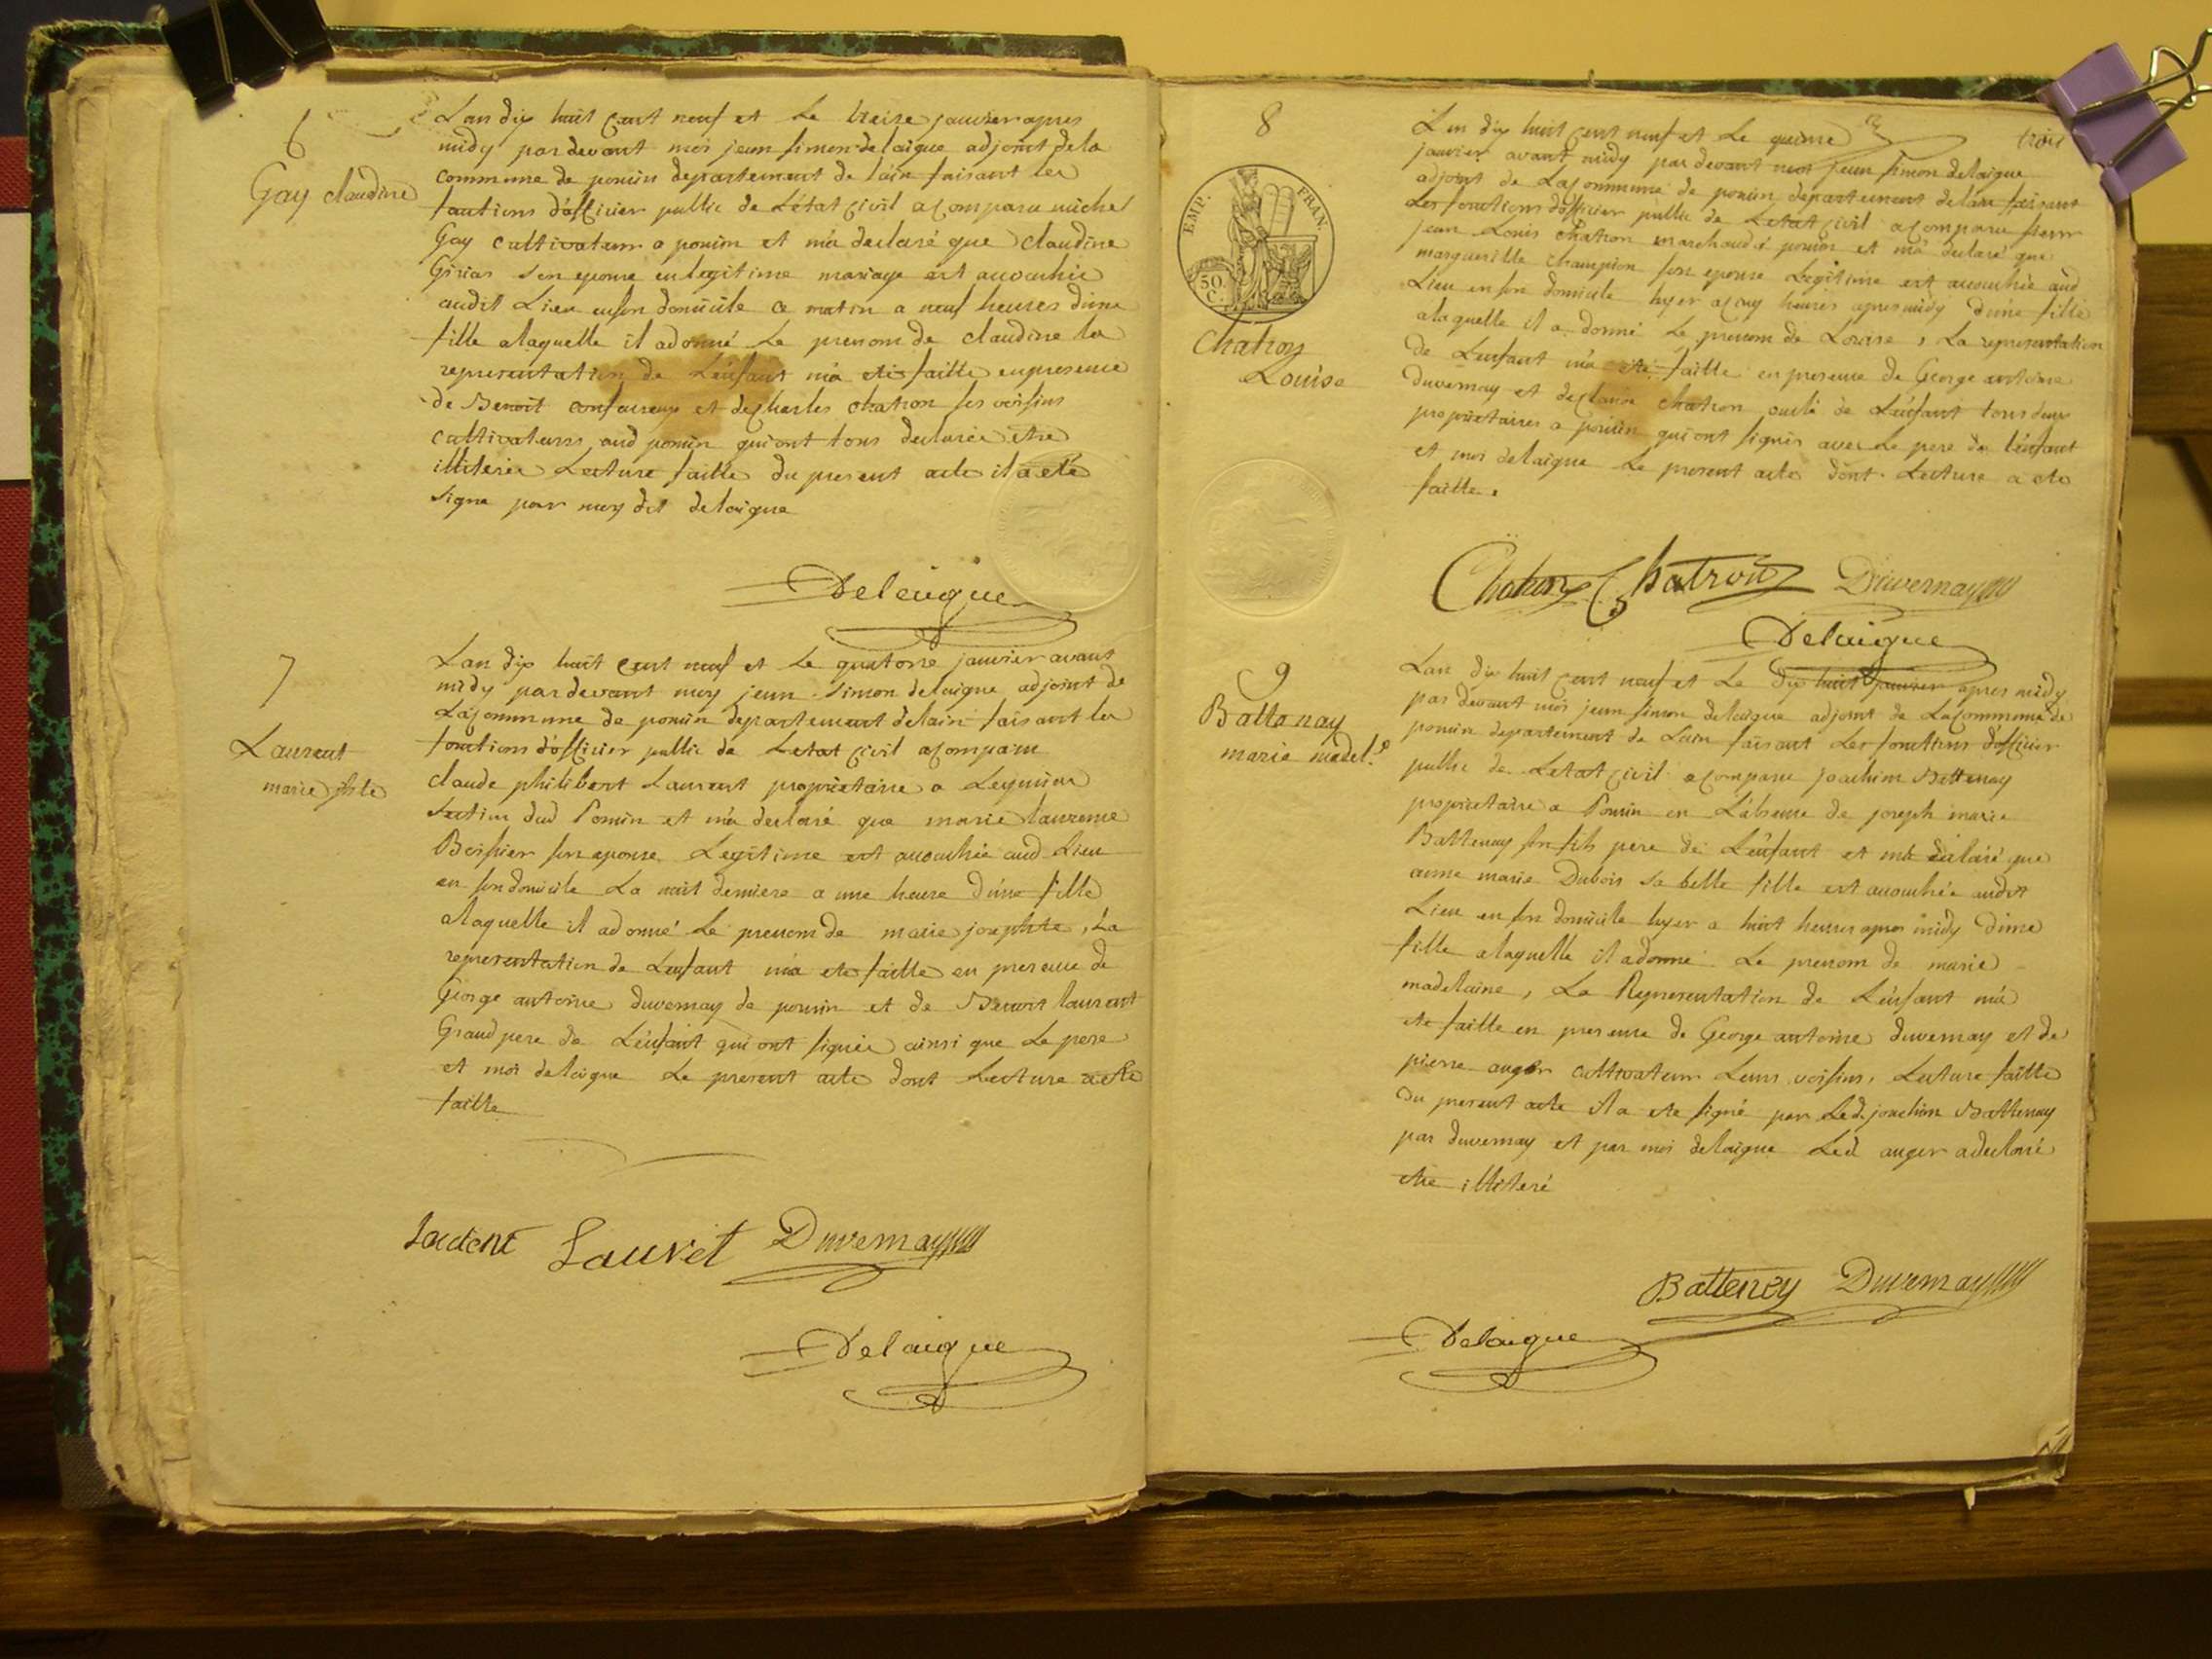 6
Gay claudine
Lan dix huit cent neuf et Le treize janvier apres
midy pardevant moi jean simon delaigue adjoint dela
commune de poncin departement de lain faisant les
fonctions d'officier public de L'état civil a comparu michel
Gay cultivateur a poncin et m'a declaré que claudine
son epouse en legitime mariage est accouchée
audit Lieu en son domicile ce matin a neuf heures d'une
fille a laquelle il a donné Le prenom de claudine la
representation de L'enfant m'a eté faitte en presence
de Benoit et de charles chatron ses voisins
cultivateurs aud poncin qui ont tous declarée etre
illiterée Lecture faitte du present acte il a eté
signe par moy dit delaigue
Delaigue
7
Laurent
marie jphte
Lan dix huit cent neuf et Le quatorze janvier avant
midy pardevant moy jean simon delaigue adjoint de
La commune de poncin departement delain faisant les
fonctions d'officier public de Letat civil a comparu
claude philibert Laurent proprietaire a Leymiau
section dud Poncin et m'a declaré que marie laurence
Boissier son epouse Legitime est accouchée aud Lieu
en son domicile La nuit derniere a une heure d'une fille
a laquelle il a donné Le prenom de marie josephte, La
representation de Lenfant m'a ete faitte en presence de
George antoine duvernay de poncin et de Benoit laurent
Grand pere de L'enfant qui ont signée ainsi que Le pere
et moi delaigue Le present acte dont Lecture a ete
faitte
Laurent Lauret Duvernay
Delaigue
trois
8
EMP. FRAN.
50 C.
Chatron
Louise
Lan dix huit cent neuf et Le quinze
janvier avant midy pardevant moi jean simon delaigue
adjoint de La commune de poncin departement delain faisant
Les fonctions d'officier public de Letat civil a comparu sieur
jean Louis chatron marchand a poncin et m'a declaré que
margueritte champion son epouse Legitime est accouchée aud
Lieu en son domicile hyer a cinq heures apres midy d'une fille
a laquelle il a donné Le prenom de Louise, La representation
de Lenfant m'a eté faitte en presence de George antoine
duvernay et de claude chatron oncle de L'enfant tous deux
proprietaires a poncin qui ont signés avec Le pere de l'enfant
et moi delaigue Le present acte dont Lecture a ete
faitte.
Chatron Chatron Duvernay
Delaigue
9
Battenay
marie madel.e
Lan dix huit cent neuf et Le dix huit janvier apres midy
par devant moi jean simon delaigue adjoint de La commune de
poncin departement de Lain faisant Les fonctions d'officier
public de Letat civil a comparu joachim Battenay
proprietaire a Poncin en L'absence de joseph marie
Battenay son fils pere de L'enfant et m'a declaré que
anne marie Dubois sa belle fille est accouchée audit
Lieu en son domicile hyer a huit heures apres midy d'une
fille a laquelle il a donné Le prenom de marie
madelaine, La Representation de L'enfant m'a
ete faitte en presence de George antoine duvernay et de
pierre auger cultivateur Leurs voisins, Lecture faitte
du present acte il a ete signé par Led. joachim Battenay
par duvernay et par moi delaigue Led auger a declaré
etre illiteré
Battenay Duvernay
Delaigue